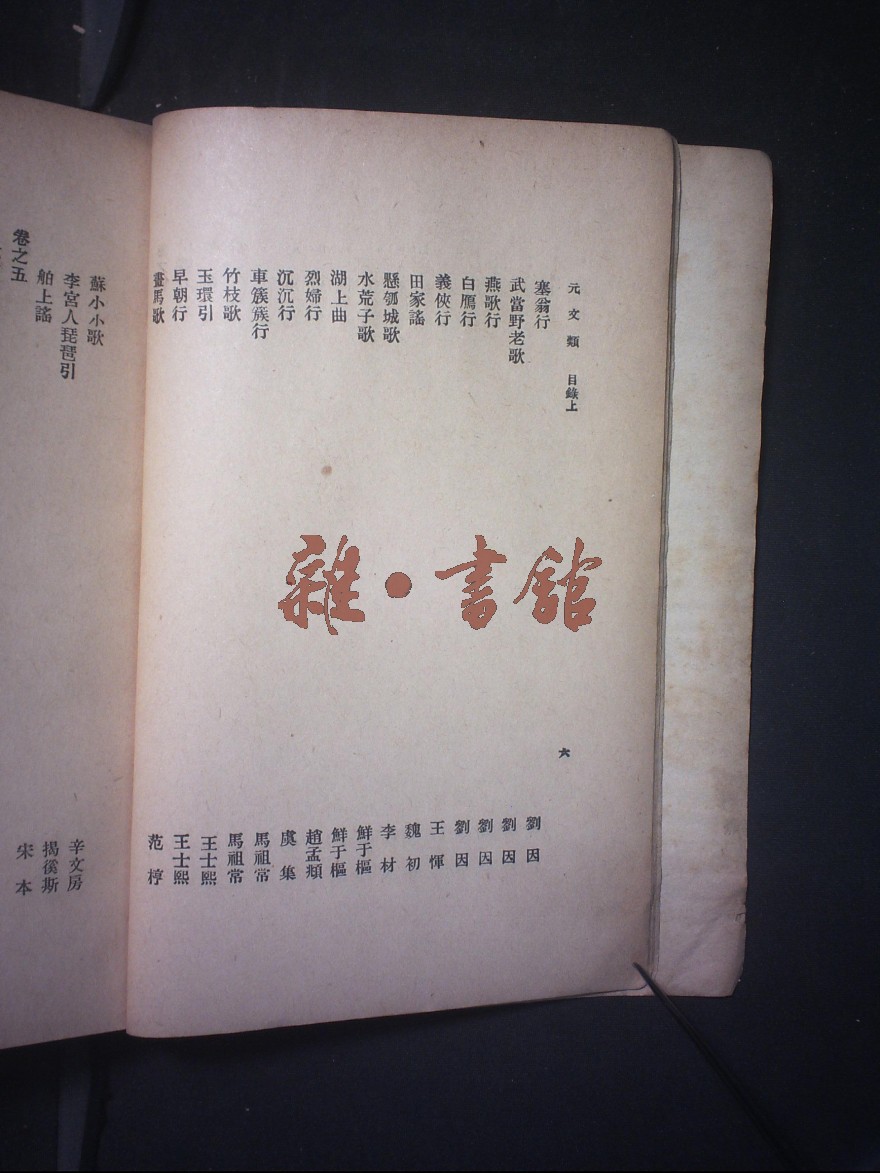 元文類 目錄上 六
塞翁行 劉因
武當野老歌 劉因
燕歌行 劉因
白鴈行 劉因
義俠行 王惲
田家謠 魏初
懸瓠城歌 李材
水荒子歌 鮮于樞
湖上曲 鮮于樞
烈婦行 趙孟頫
沉沉行 虞集
車簇簇行 馬祖常
竹枝歌 馬祖常
玉環引 王士熙
早朝行 王士熙
畫馬歌 范梈
蘇小小歌 辛文房
李宮人琵琶引 揭徯斯
舶上謠 宋本
卷之五
雜·書館